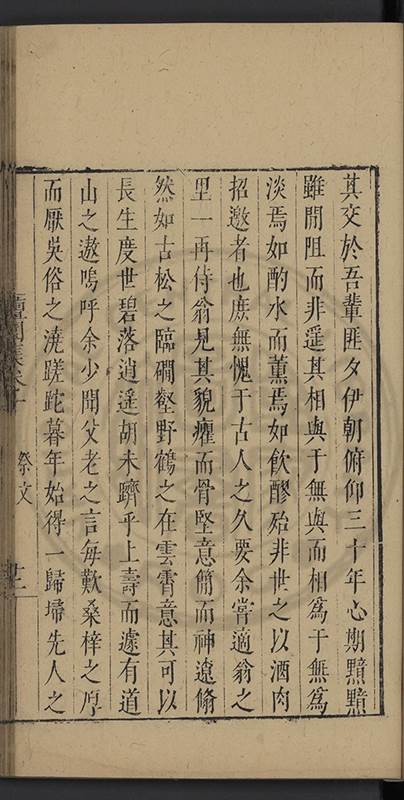 其交於吾輩匪夕伊朝俯仰三十年心期黯黯
雖閒阻而非遥其相與于無與而相爲于無爲
淡焉如酌水而薰焉如飲醪殆非世之以酒肉
招邀者也庶無愧于古人之久要余嘗適翁之
里一再侍翁見其貌癯而骨堅意簡而神遠翛
然如古松之臨磵壑野鶴之在雲霄意其可以
長生度世碧落逍遥胡未躋乎上壽而遽有道
山之遨嗚呼余少聞父老之言每歎桑梓之厚
而厭吳俗之澆蹉跎暮年始得一歸埽先人之
祭文